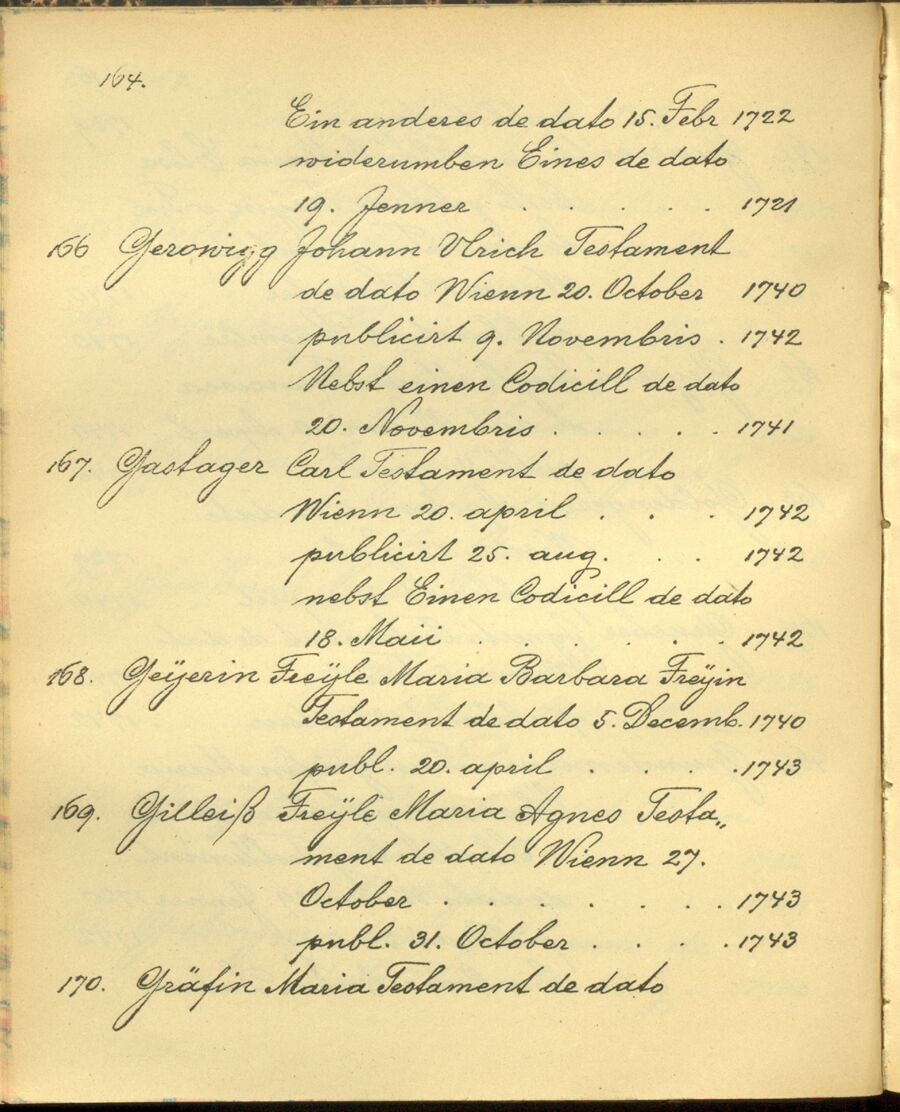 164.
Ein anderes de dato 15. Febr 1722
widerumben Eines de dato
19. Jenner . . . . . 1721
166 Gerowigg Johann Vlrich Testament
de dato Wienn 20. October 1740
publicirt 9. Novembris . 1742
Nebst einen Codicill de dato
20. Novembris . . . . . 1741
167. Gastager Carl Testament de dato
Wienn 20. april . . . 1742
publicirt 25. aug. . . . 1742
nebst Einen Codicill de dato
18. Maii . . . . . 1742
168. Geÿerin Freÿle Maria Barbara Freÿin
Testament de dato 5. Decemb. 1740
publ. 20. april . . . . 1743
169. Gilleiß Freÿle Maria Agnes Testa„
ment de dato Wienn 27.
October . . . . . . 1743
publ. 31. October . . . . 1743
170. Gräfin Maria Testament de dato